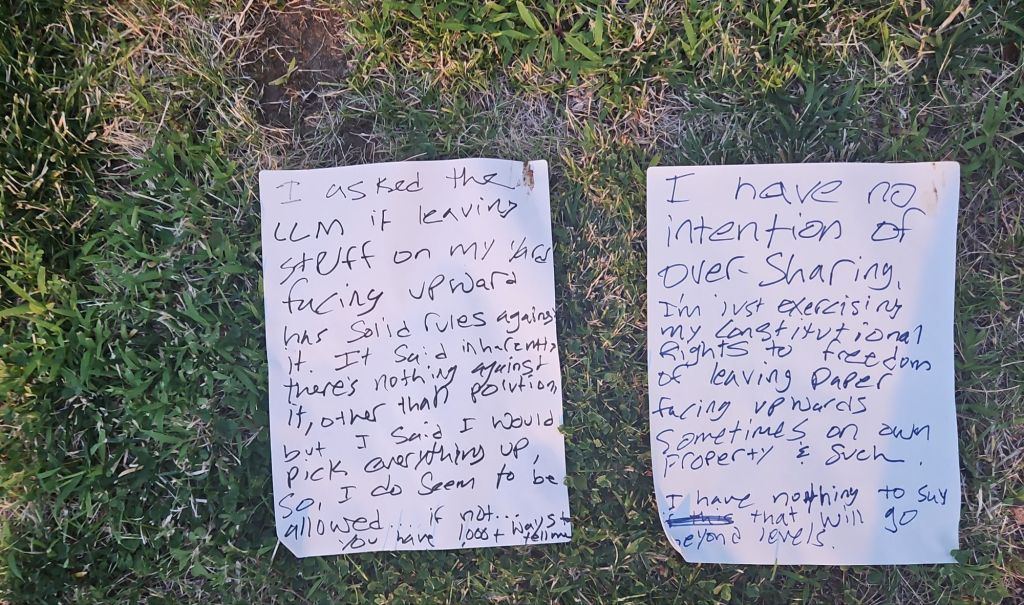 I asked the
LLM if leaving
stuff on my yard
facing upward
has solid rules against
it. It said inherently
there's nothing against
it, other than polution,
but I said I would
pick everything up,
So, I do seem to be
allowed... if not...
You have 1000+ ways to
tell me
I have no
intention of
over-sharing.
I'm just exercising
my constitutional
Rights to freedom
of leaving paper
facing upwards
sometimes on own
Property & such.
I have nothing to say
that will go
beyond levels.